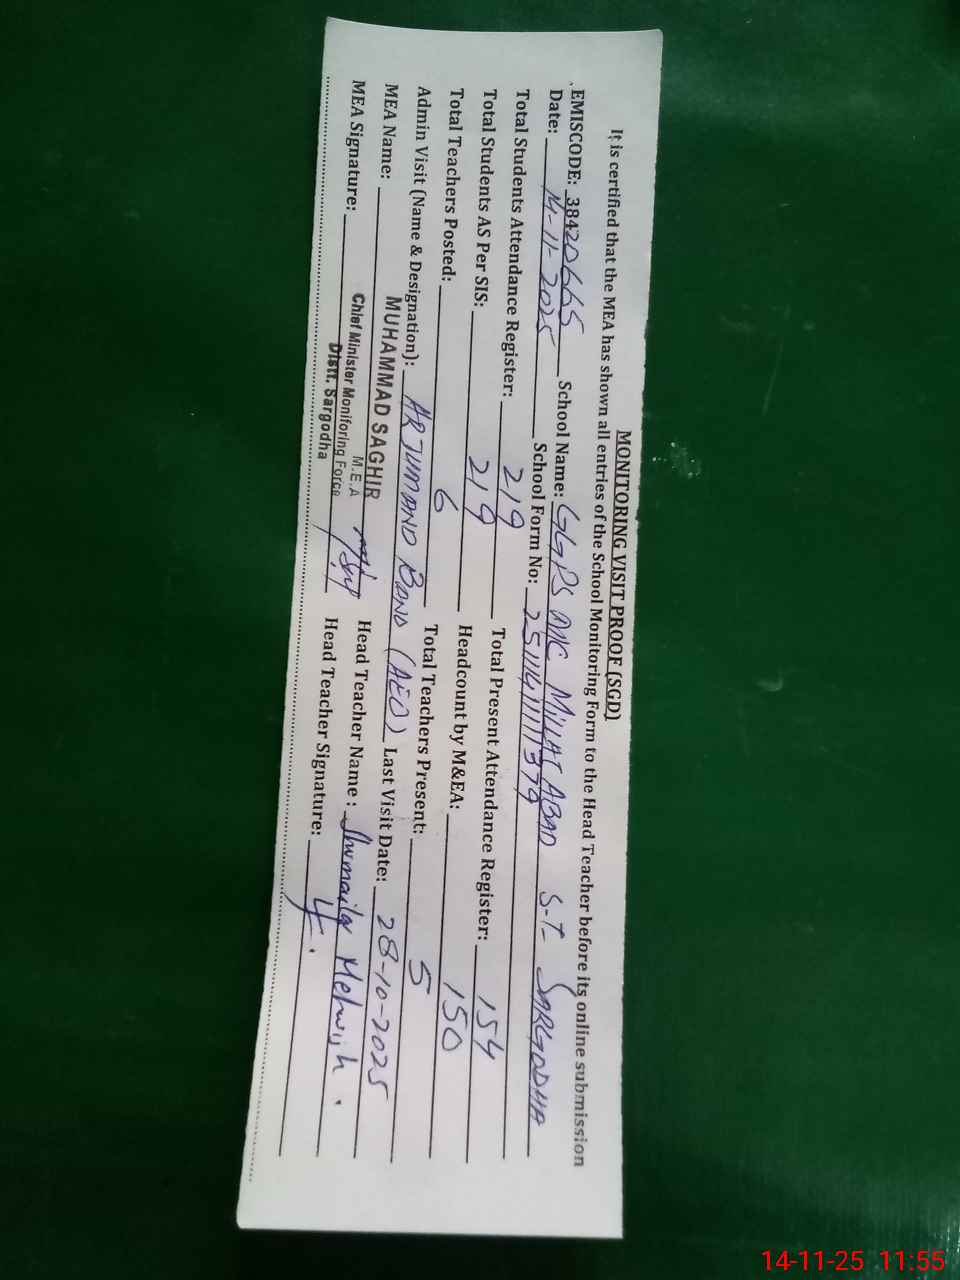 MONITORING VISIT PROOF (SGD)
It is certified that the MEA has shown all entries of the School Monitoring Form to the Head Teacher before its online submission
EMISCODE: 38420665 School Name: GGPS MC MILLAT ABAD S-T SARGODHA
Date: 14-11-2025 School Form No: 25111411111379
Total Students Attendance Register: 219 Total Present Attendance Register: 154
Total Students AS Per SIS: 219 Headcount by M&EA: 150
Total Teachers Posted: 6 Total Teachers Present: 5
Admin Visit (Name & Designation): ARJUMAND BANO (AEO) Last Visit Date: 28-10-2025
MEA Name: MUHAMMAD SAGHIR Head Teacher Name : Shumaila Mehwish.
M.E.A
MEA Signature: Chief Minister Monitoring Force Head Teacher Signature:
Distt. Sargodha
14-11-25 11:55